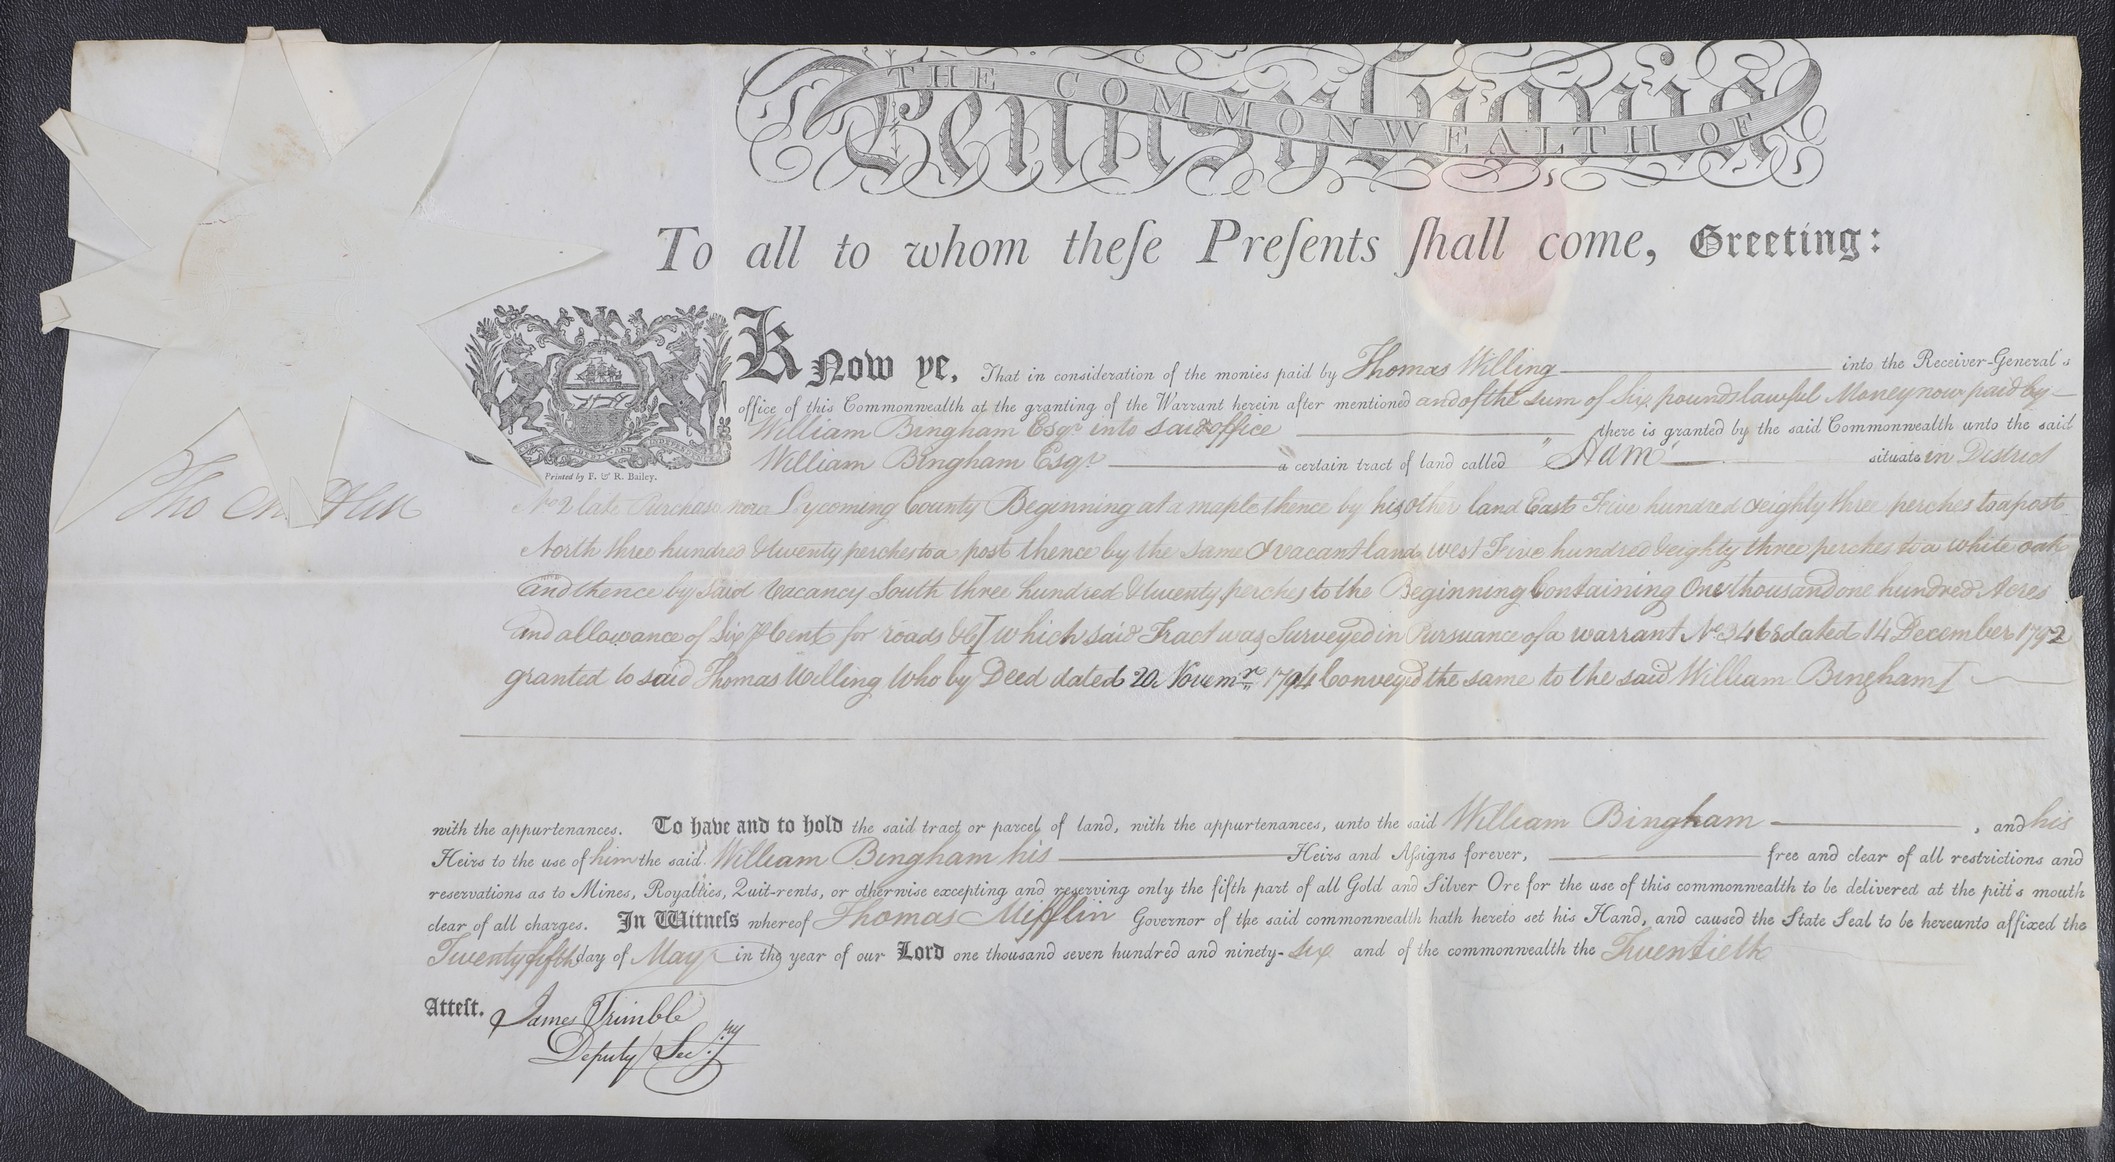 THE COMMONWEALTH OF
Pennsylvania
To all to whom theſe Preſents ſhall come, Greeting:
Know ye, That in consideration of the monies paid by Thomas Willing into the Receiver-General's
office of this Commonwealth at the granting of the Warrant herein after mentioned and of the sum of Six pounds lawful Money now paid by
William Bingham Esqr into said office there is granted by the said Commonwealth unto the said
William Bingham Esqr a certain tract of land called "Adam" situate in District
Printed by F. & R. Bailey.
No 2 late Purchase now Lycoming County Beginning at a maple thence by his other land East Five hundred & eighty three perches to a post
North three hundred & twenty perches to a post thence by the same & vacant land West Five hundred & eighty three perches to a white oak
and thence by said Vacancy South three hundred & twenty perches to the Beginning Containing One thousand one hundred Acres
and allowance of Six P Cent for roads &c [which said Tract was Surveyed in Pursuance of a warrant No 3468 dated 14 December 1792
granted to said Thomas Willing Who by Deed dated 20 Novemr 1794 Conveyed the same to the said William Bingham]
Tho Mifflin
with the appurtenances. To have and to hold the said tract or parcel of land, with the appurtenances, unto the said William Bingham, and his
Heirs to the use of him the said William Bingham his Heirs and Aſsigns forever, free and clear of all restrictions and
reservations as to Mines, Royalties, Quit-rents, or otherwise excepting and reserving only the fifth part of all Gold and Silver Ore for the use of this commonwealth to be delivered at the pitt's mouth
clear of all charges. In Witneſs whereof Thomas Mifflin Governor of the said commonwealth hath hereto set his Hand, and caused the State Seal to be hereunto affixed the
Twenty fifth day of May in the year of our Lord one thousand seven hundred and ninety-six and of the commonwealth the Twentieth
Atteſt. James Trimble
Deputy Secy